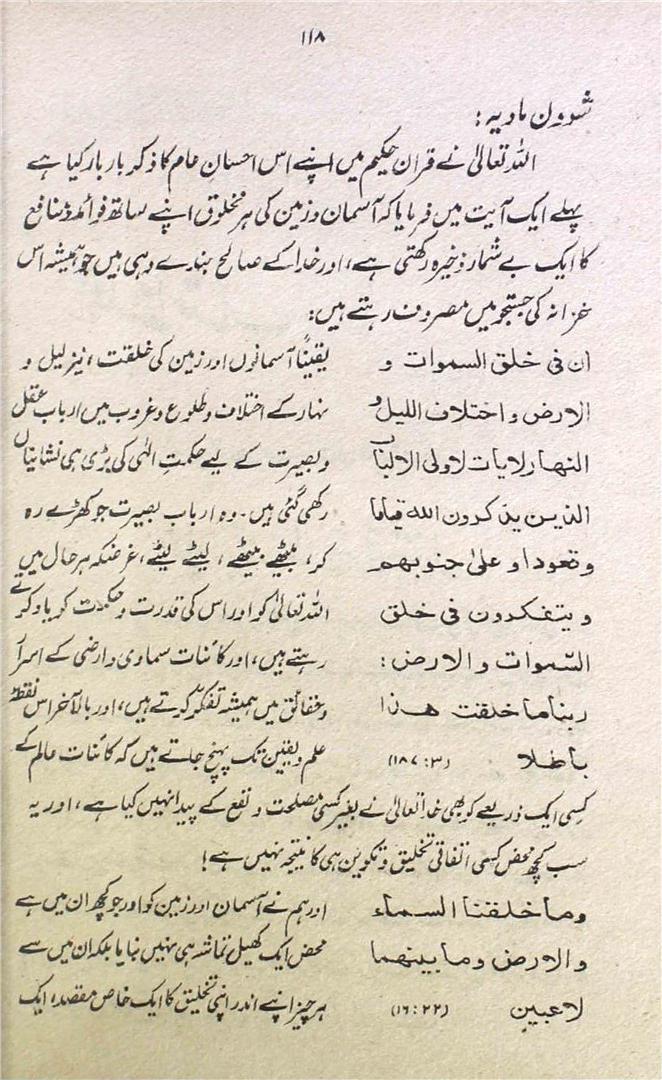 ۱۱۸
شوون مادیہ :
اللہ تعالیٰ نے قرآن حکیم میں اپنے اس احسان عام کا ذکر بار بار کیا ہے
پہلے ایک آیت میں فرمایا کہ آسمان و زمین کی ہر مخلوق اپنے ساتھ فوائد و منافع
کا ایک بے شمار ذخیرہ رکھتی ہے، اور خدا کے صالح بندے وہی ہیں جو ہمیشہ اس
خزانہ کی جستجو میں مصروف رہتے ہیں:
ان فی خلق السموات و
الارض و اختلاف اللیل و
النھار لایات لاولی الالباب
الذین یذکرون اللہ قیاما
و قعودا و علیٰ جنوبھم
و یتفکرون فی خلق
السّموات و الارض :
ربنا ما خلقت ھذا
باطلا (۱۸۷:۳)
یقیناً آسمانوں اور زمین کی خلقت، نیز لیل و
نہار کے اختلاف و طلوع و غروب میں ارباب عقل
و بصیرت کے لیے حکمتِ الٰہی کی بڑی ہی نشانیاں
رکھی گئی ہیں۔ وہ ارباب بصیرت جو کھڑے رہ
کر، بیٹھے بیٹھے، لیٹے لیٹے، غرضکہ ہر حال میں
اللہ تعالیٰ کو اور اس کی قدرت و حکمت کو یاد کرتے
رہتے ہیں، اور کائنات سماوی و ارضی کے اسرار
و حقائق میں ہمیشہ تفکر کرتے ہیں، اور بالآخر اس نقطۂ
علم و یقین تک پہنچ جاتے ہیں کہ کائنات عالم کے
کسی ایک ذریعے کو بھی خدا تعالیٰ نے بغیر کسی مصلحت و نفع کے پیدا نہیں کیا ہے، اور یہ
سب کچھ محض کسی اتفاقی تخلیق و تکوین ہی کا نتیجہ نہیں ہے!
وما خلقنا السماء
و الارض و ما بینھما
لاعبین (۱۶:۲۲)
اور ہم نے آسمان اور زمین کو اور جو کچھ ان میں ہے
محض ایک کھیل تماشہ ہی نہیں بنایا بلکہ ان میں سے
ہر چیز اپنے اندر اپنی تخلیق کا ایک خاص مقصد، ایک